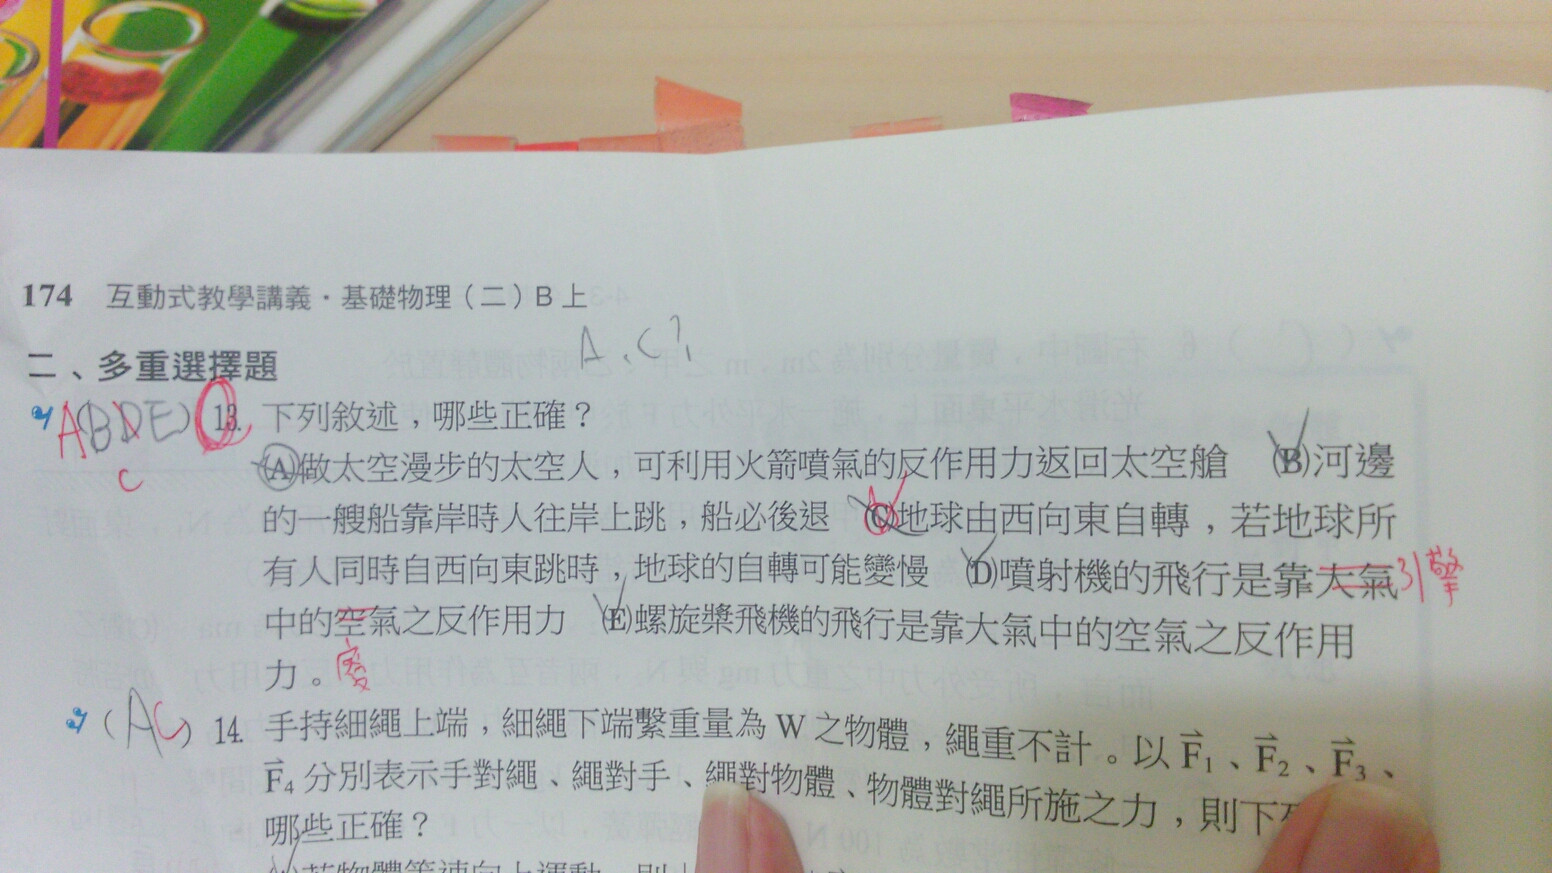 174 互動式教學講義・基礎物理(二)B上
A、C?
二、多重選擇題
A(BDE) 13. 下列敘述,哪些正確?
C
(A)做太空漫步的太空人,可利用火箭噴氣的反作用力返回太空艙 (B)河邊
的一艘船靠岸時人往岸上跳,船必後退 (C)地球由西向東自轉,若地球所
有人同時自西向東跳時,地球的自轉可能變慢 (D)噴射機的飛行是靠大氣引擎
中的空氣之反作用力 (E)螺旋槳飛機的飛行是靠大氣中的空氣之反作用
力。廢
(AC) 14. 手持細繩上端,細繩下端繫重量為 W 之物體,繩重不計。以 F₁、F₂、F₃、
F₄ 分別表示手對繩、繩對手、繩對物體、物體對繩所施之力,則下
哪些正確?